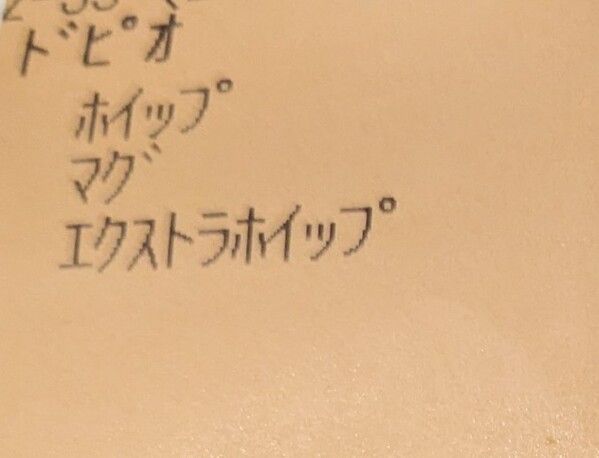 ドピオ
ホイップ
マグ
エクストラホイップ